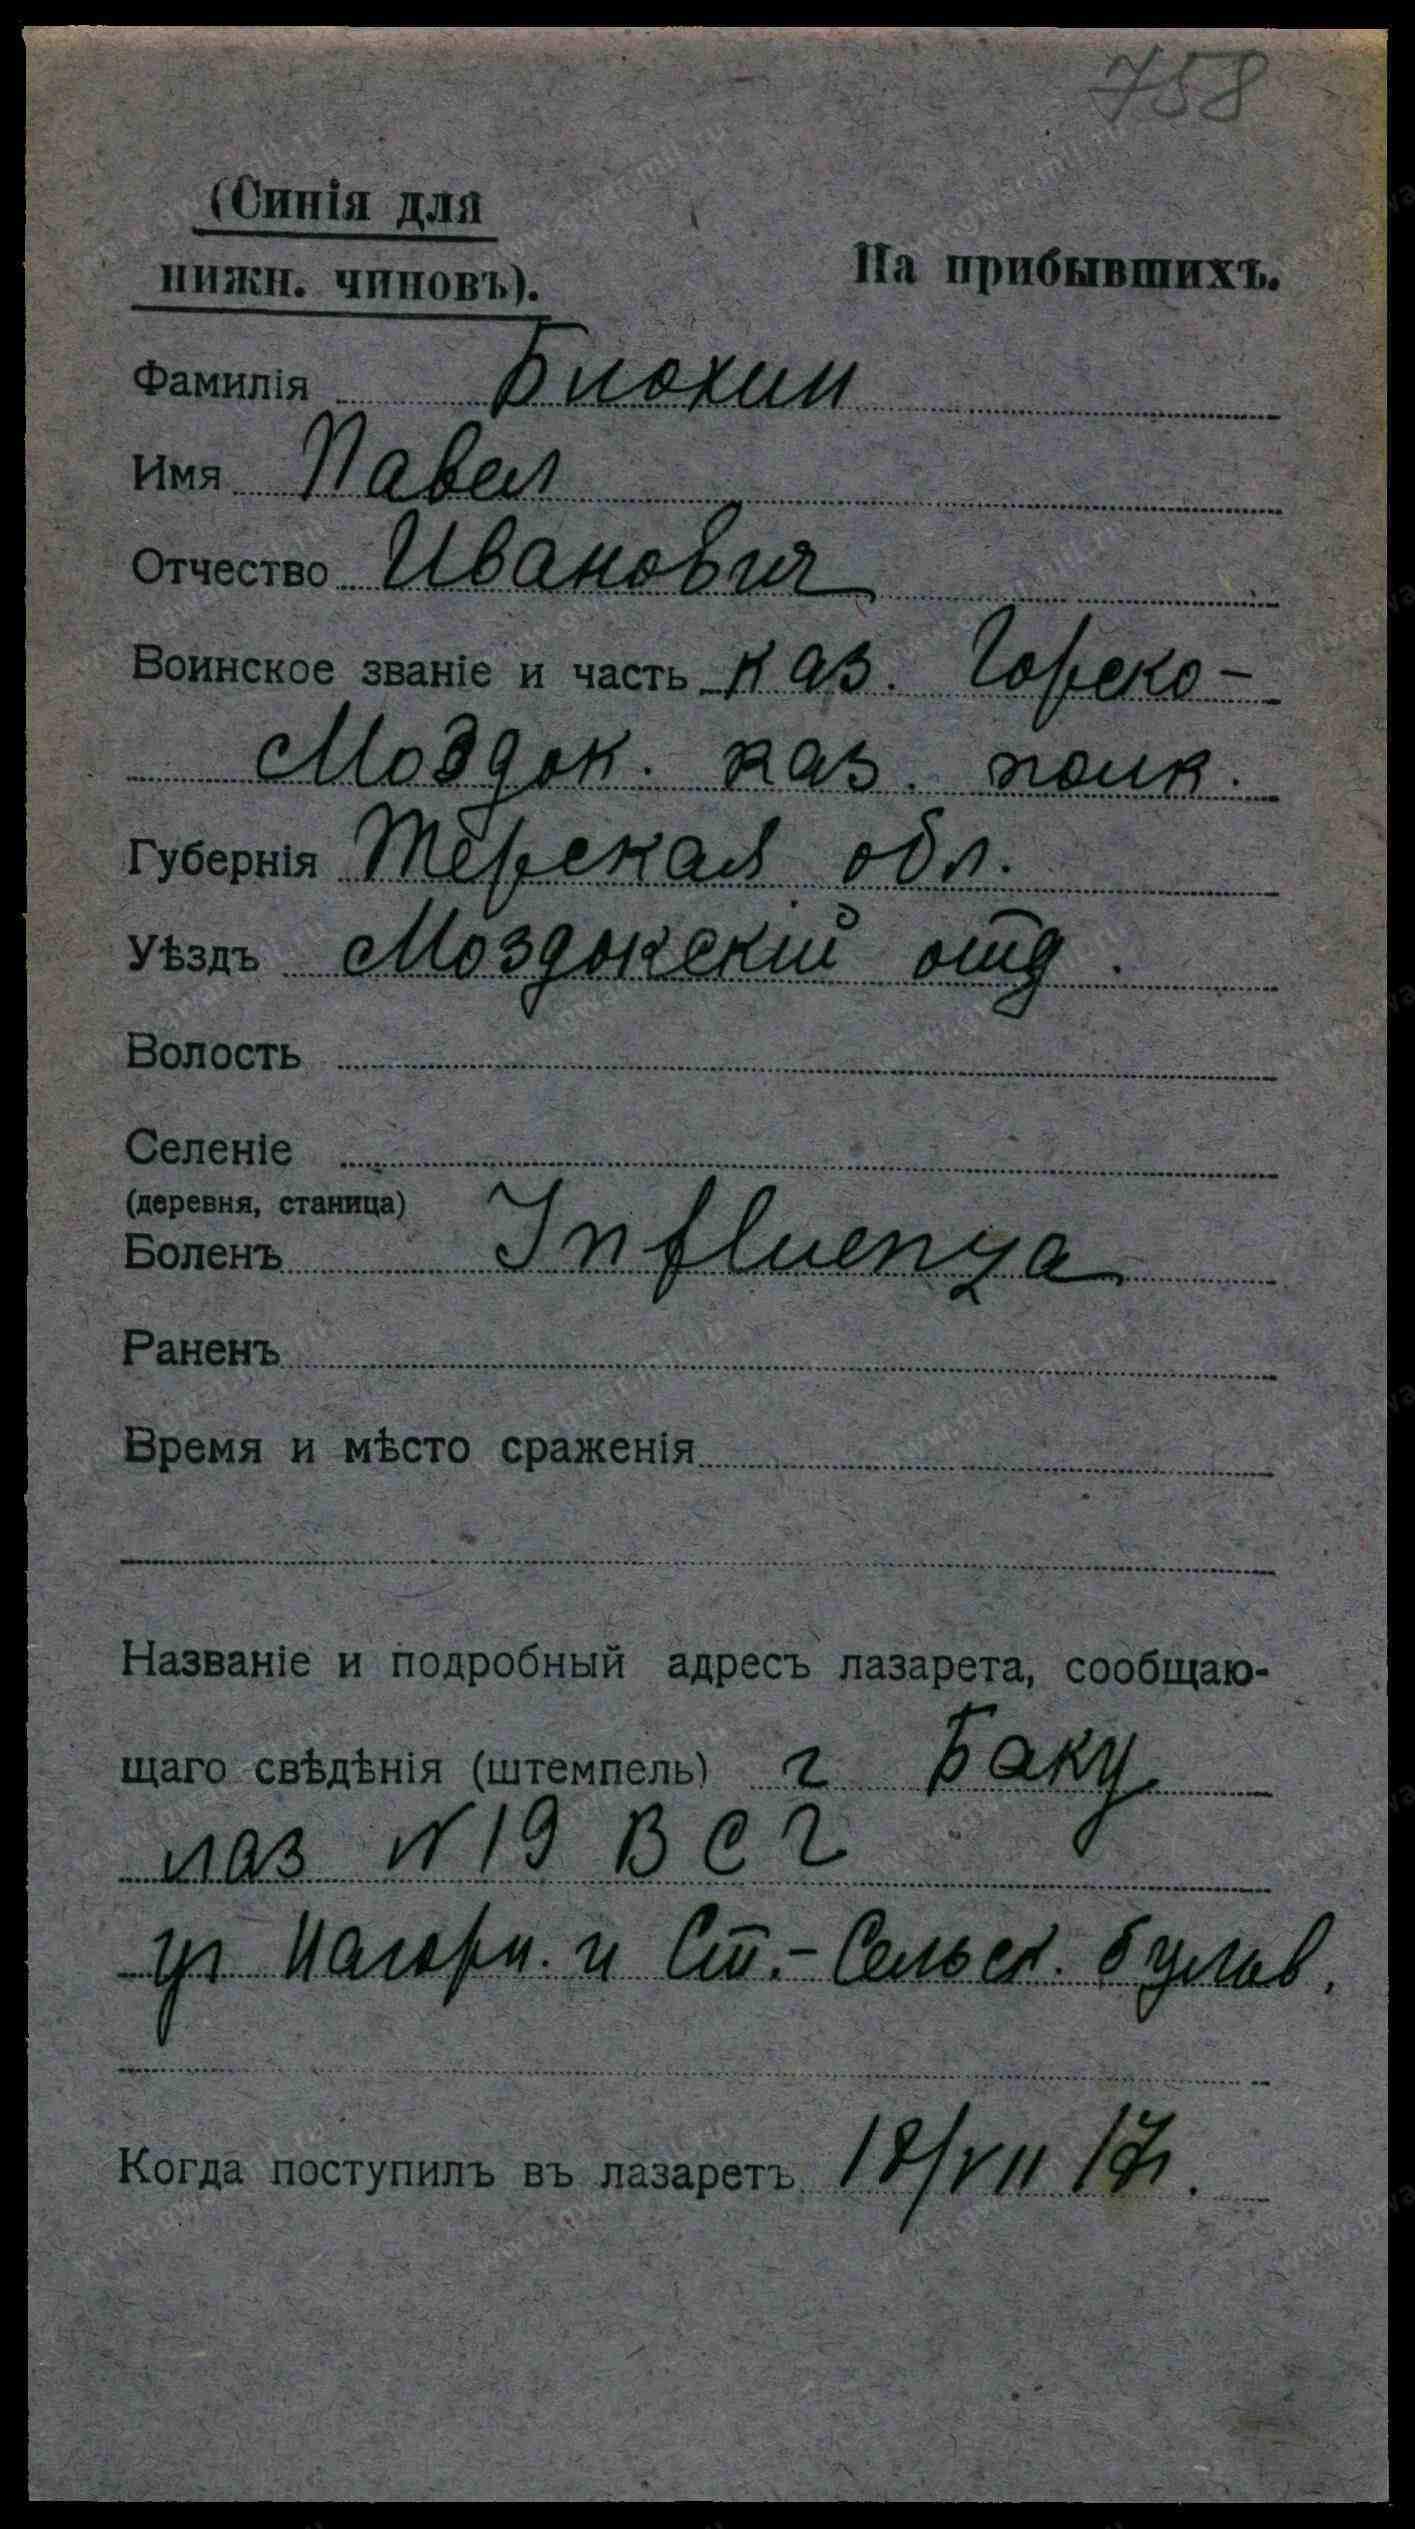 758
(Синія для
нижн. чиновъ).
На прибывшихъ.
Фамилія Блохин
Имя Павел
Отчество Иванович
Воинское званіе и часть каз. Горско-
Моздок. каз. полк.
Губернія Терская обл.
Уѣздъ Моздокский отд.
Волость
Селеніе
(деревня, станица)
Боленъ Influenza
Раненъ
Время и мѣсто сраженія
Названіе и подробный адресъ лазарета, сообщаю-
щаго свѣдѣнія (штемпель) г Баку
лаз N 19 В С Г
уг Нагорн. и Ст.-Сельск. бульв.
Когда поступилъ въ лазаретъ 18/VII 17г.